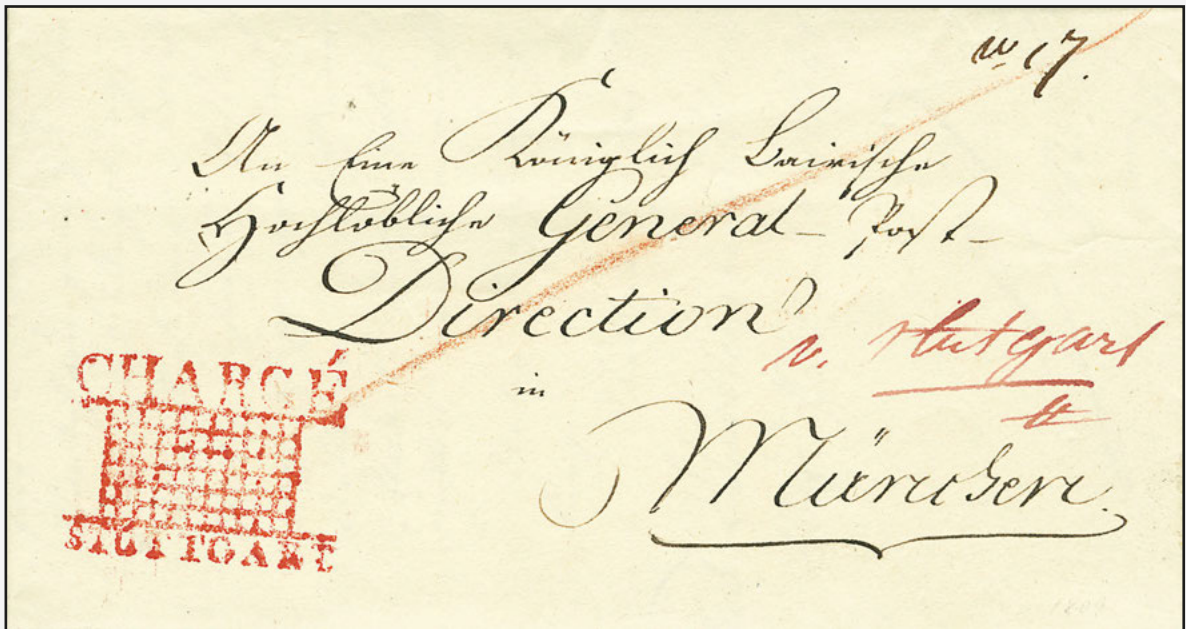 17.
An Eine Königlich Bairische
Hochlöbliche General-Post-
Direction
v. Stutgart
in
München.
CHARGÉ
STUTTGART